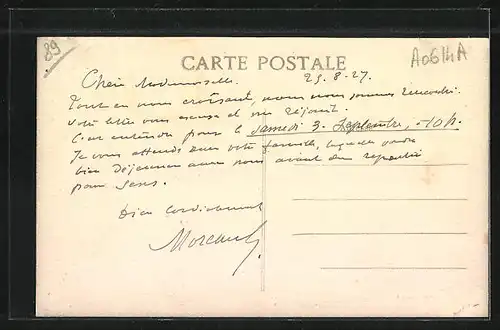 89
CARTE POSTALE
A0614A
Chère Mademoiselle. 25.8.27.
Tout en nous croisant, nous nous sommes rencontrés.
Votre lettre nous et me réjouit.
C'est entendu pour le samedi 3 Septembre, 10 h.
Je vous attends avec votre famille, laquelle voudra
bien déjeuner avec nous avant de repartir
pour Sens.
Bien cordialement